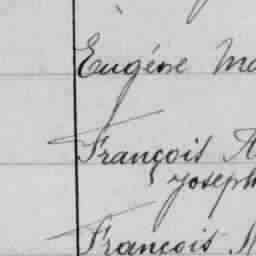 Eugène
François
Joseph
François